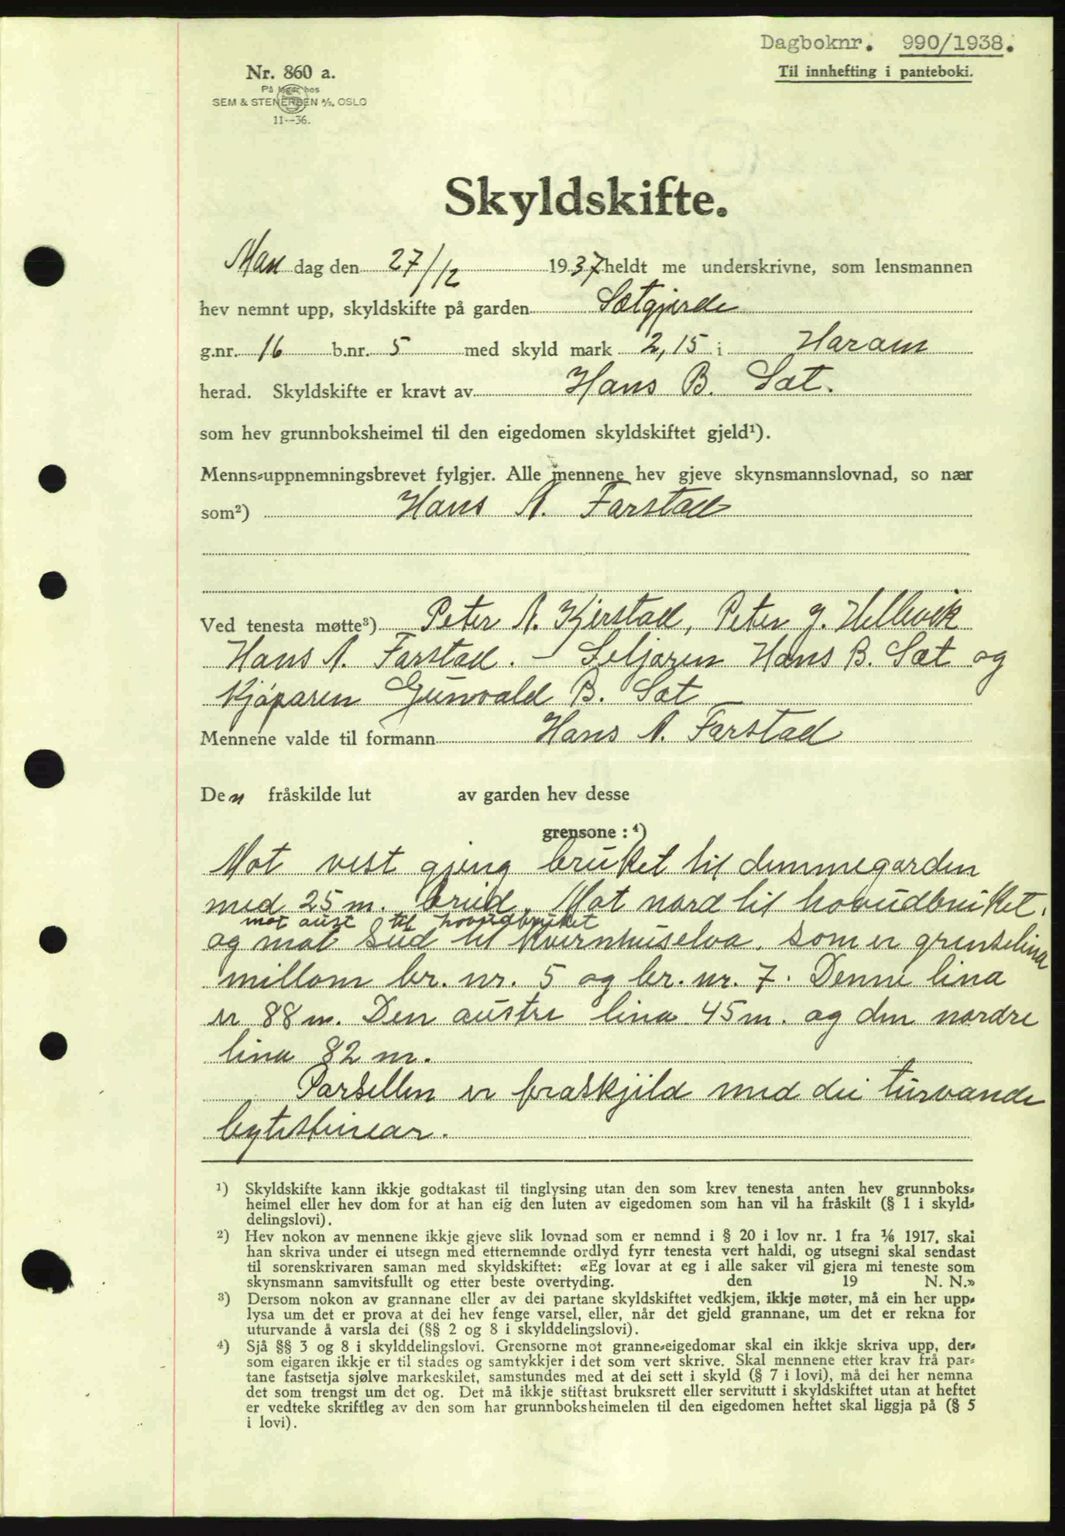 Dagboknr. 990/1938.
Til innhefting i panteboki.
Nr. 860 a.
På lager hos
SEM & STENERSEN A/S, OSLO
11--36.
Skyldskifte.
Mandag den 27/12 1937 heldt me underskrivne, som lensmannen
hev nemnt upp, skyldskifte på garden Sætgjerde
g.nr. 16 b.nr. 5 med skyld mark 2,15 i Haram
herad. Skyldskifte er kravt av Hans B. Sæt.
som hev grunnboksheimel til den eigedomen skyldskiftet gjeld¹).
Menns-uppnemningsbrevet fylgjer. Alle mennene hev gjeve skynsmannslovnad, so nær
som²) Hans A. Farstad
Ved tenesta møtte³) Peter A. Kjerstad, Peter J. Hellevik
Hans A. Farstad. – Seljaren Hans B. Sæt og
Kjøparen Gunvald B. Sæt
Mennene valde til formann Hans A. Farstad
Den fråskilde lut av garden hev desse
grensone :⁴)
Mot vest gjeng bruket til demmegarden
med 25 m. breid. Mot nord til hovudbruket.
mot aust til hovudbruket
og mot Sud til Kvernhuselva, som er grenselina
millom br. nr. 5 og br. nr. 7. Denne lina
er 88 m. Den austre lina 45 m. og den nordre
lina 82 m.
Parsellen er fraskjild med dei turvande
bytesteinar.
¹) Skyldskifte kann ikkje godtakast til tinglysing utan den som krev tenesta anten hev grunnboks-
heimel eller hev dom for at han eig den luten av eigedomen som han vil ha fråskilt (§ 1 i skyld-
delingslovi).
²) Hev nokon av mennene ikkje gjeve slik lovnad som er nemnd i § 20 i lov nr. 1 fra ⅟₆ 1917, skal
han skriva under ei utsegn med etternemnde ordlyd fyrr tenesta vert haldi, og utsegni skal sendast
til sorenskrivaren saman med skyldskiftet: «Eg lovar at eg i alle saker vil gjera mi teneste som
skynsmann samvitsfullt og etter beste overtyding. den 19 N. N.»
³) Dersom nokon av grannane eller av dei partane skyldskiftet vedkjem, ikkje møter, må ein her upp-
lysa um det er prova at dei hev fenge varsel, eller, når det gjeld grannane, um det er rekna for
uturvande å varsla dei (§§ 2 og 8 i skylddelingslovi).
⁴) Sjå §§ 3 og 8 i skylddelingslovi. Grensorne mot granne-eigedomar skal ein ikkje skriva upp, der-
som eigaren ikkje er til stades og samtykkjer i det som vert skrive. Skal mennene etter krav frå par-
tane fastsetja sjølve markeskilet, samstundes med at dei sett i skyld (§ 7 i lovi), må dei her nemna
det som trengst um det og. Det må ikkje stiftast bruksrett eller servitutt i skyldskiftet utan at heftet
er vedteke skriftleg av den som har grunnboksheimelen til den eigedomen heftet skal liggja på (§ 5
i lovi).